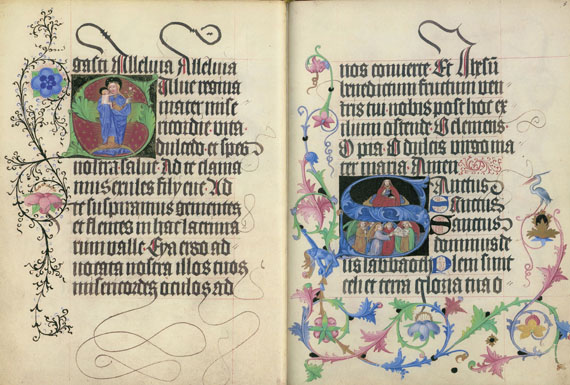 gasti Alleluia Alleluia
Salue regina
mater mise
ricordie vita
dulcedo et spes
nostra salue Ad te clama
mus exules filij eue Ad
te suspiramus gementes
et flentes in hac lacrima
rum valle Eya ergo ad
uocata nostra illos tuos
misericordes oculos ad
nos conuerte Et Ihesum
benedictum fructum ven
tris tui nobis post hoc ex
ilium ostende O clemens
O pia O dulcis virgo ma
ter maria Amen
Sanctus
Sanctus
Sanctus
dominus de
us sabbaoth Pleni sunt
celi et terra gloria tua O